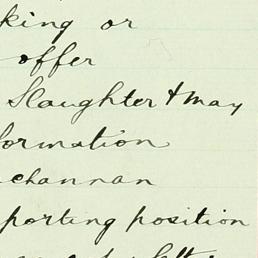 king or
offer
Slaughter + May
formation
channan
porting position